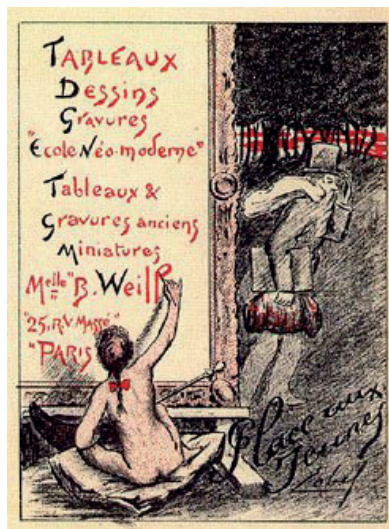 TABLEAUX
Dessins
Gravures
"Ecole Néo-moderne"
Tableaux &
gravures anciens
Miniatures
Melle B. Weill
"25, R.V. Massé"
"PARIS"
Place aux
Jeunes